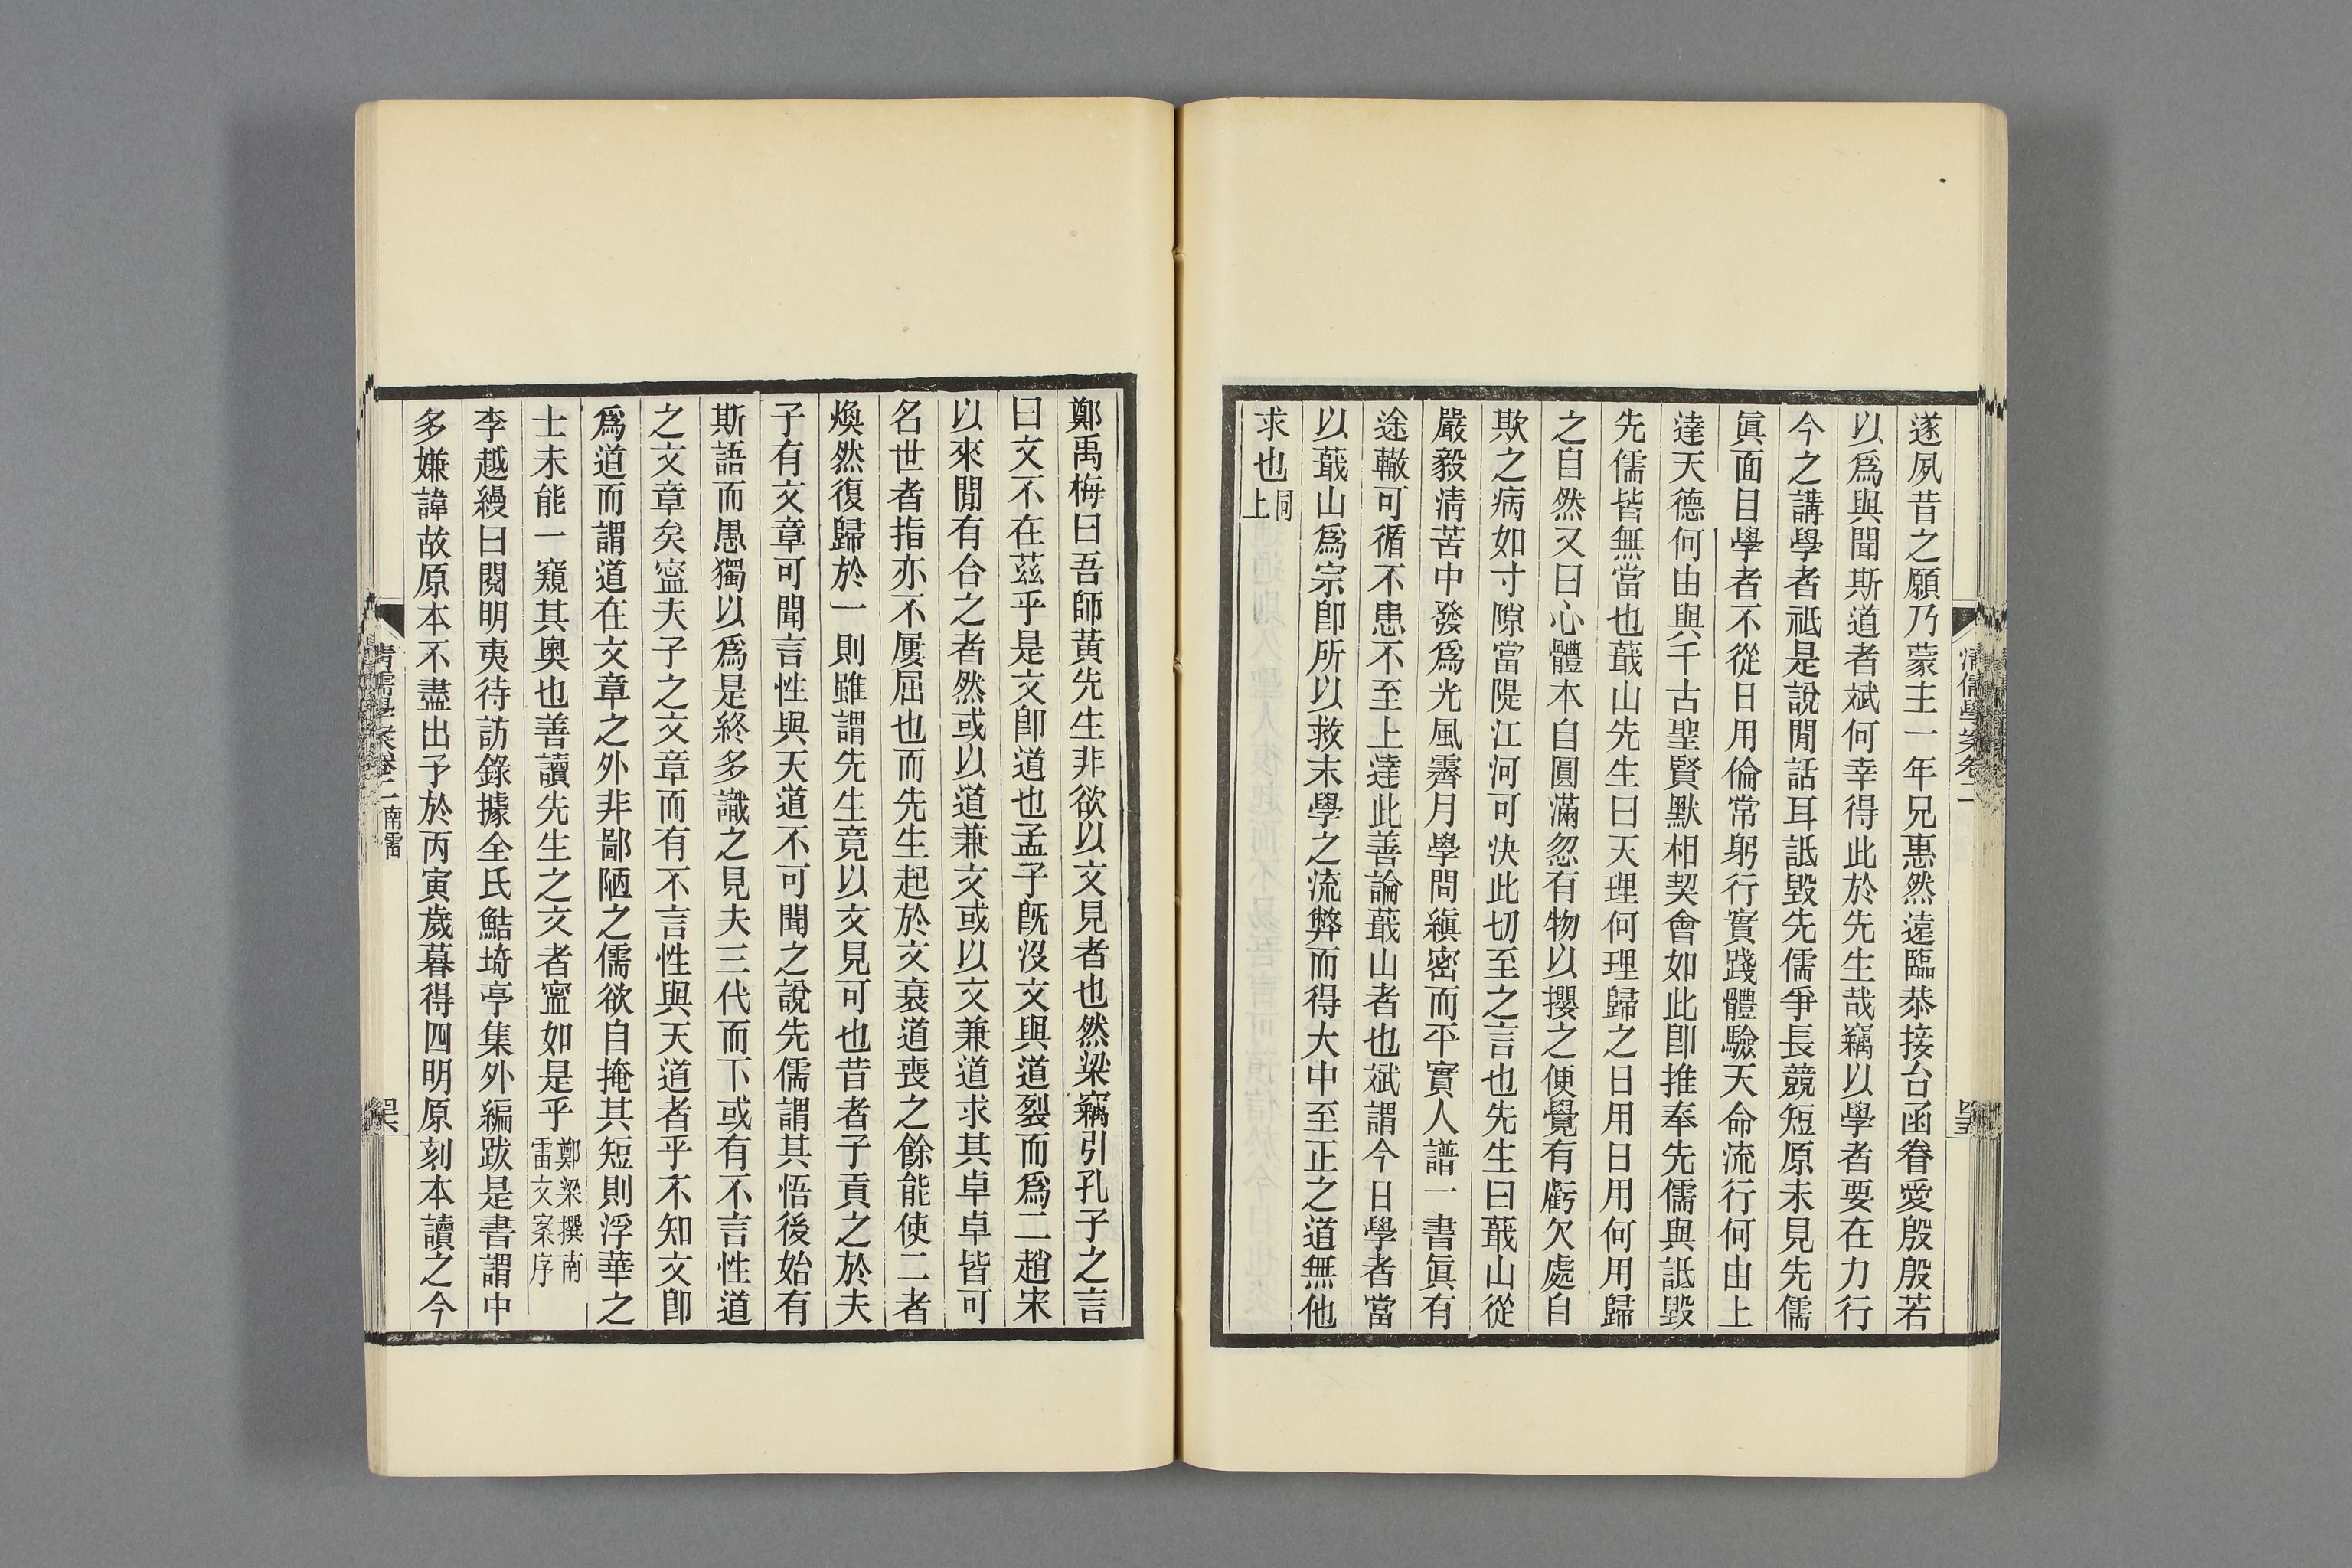 遂夙昔之願乃蒙主一年兄惠然遠臨恭接台函眷愛殷殷若
以爲與聞斯道者斌何幸得此於先生哉竊以學者要在力行
今之講學者祇是說閒話耳詆毀先儒爭長競短原未見先儒
眞面目學者不從日用倫常躬行實踐體驗天命流行何由上
達天德何由與千古聖賢默相契會如此卽推奉先儒與詆毀
先儒皆無當也蕺山先生曰天理何理歸之日用日用何用歸
之自然又曰心體本自圓滿忽有物以攖之便覺有虧欠處自
欺之病如寸隙當隄江河可決此切至之言也先生曰蕺山從
嚴毅淸苦中發爲光風霽月學問縝密而平實人譜一書眞有
途轍可循不患不至上達此善論蕺山者也斌謂今日學者當
以蕺山爲宗卽所以救末學之流弊而得大中至正之道無他
求也同上
清儒學案卷二
鄭禹梅曰吾師黃先生非欲以文見者也然梁竊引孔子之言
曰文不在茲乎是文卽道也孟子旣沒文與道裂而爲二趙宋
以來閒有合之者然或以道兼文或以文兼道求其卓卓皆可
名世者指亦不屢屈也而先生起於文衰道喪之餘能使二者
煥然復歸於一則雖謂先生竟以文見可也昔者子貢之於夫
子有文章可聞言性與天道不可聞之說先儒謂其悟後始有
斯語而愚獨以爲是終多識之見夫三代而下或有不言性道
之文章矣寍夫子之文章而有不言性與天道者乎不知文卽
爲道而謂道在文章之外非鄙陋之儒欲自掩其短則浮華之
士未能一窺其奧也善讀先生之文者寍如是乎鄭梁撰南
雷文案序
李越縵曰閱明夷待訪錄據全氏鮚埼亭集外編跋是書謂中
多嫌諱故原本不盡出予於丙寅歲暮得四明原刻本讀之今
清儒學案卷二南雷